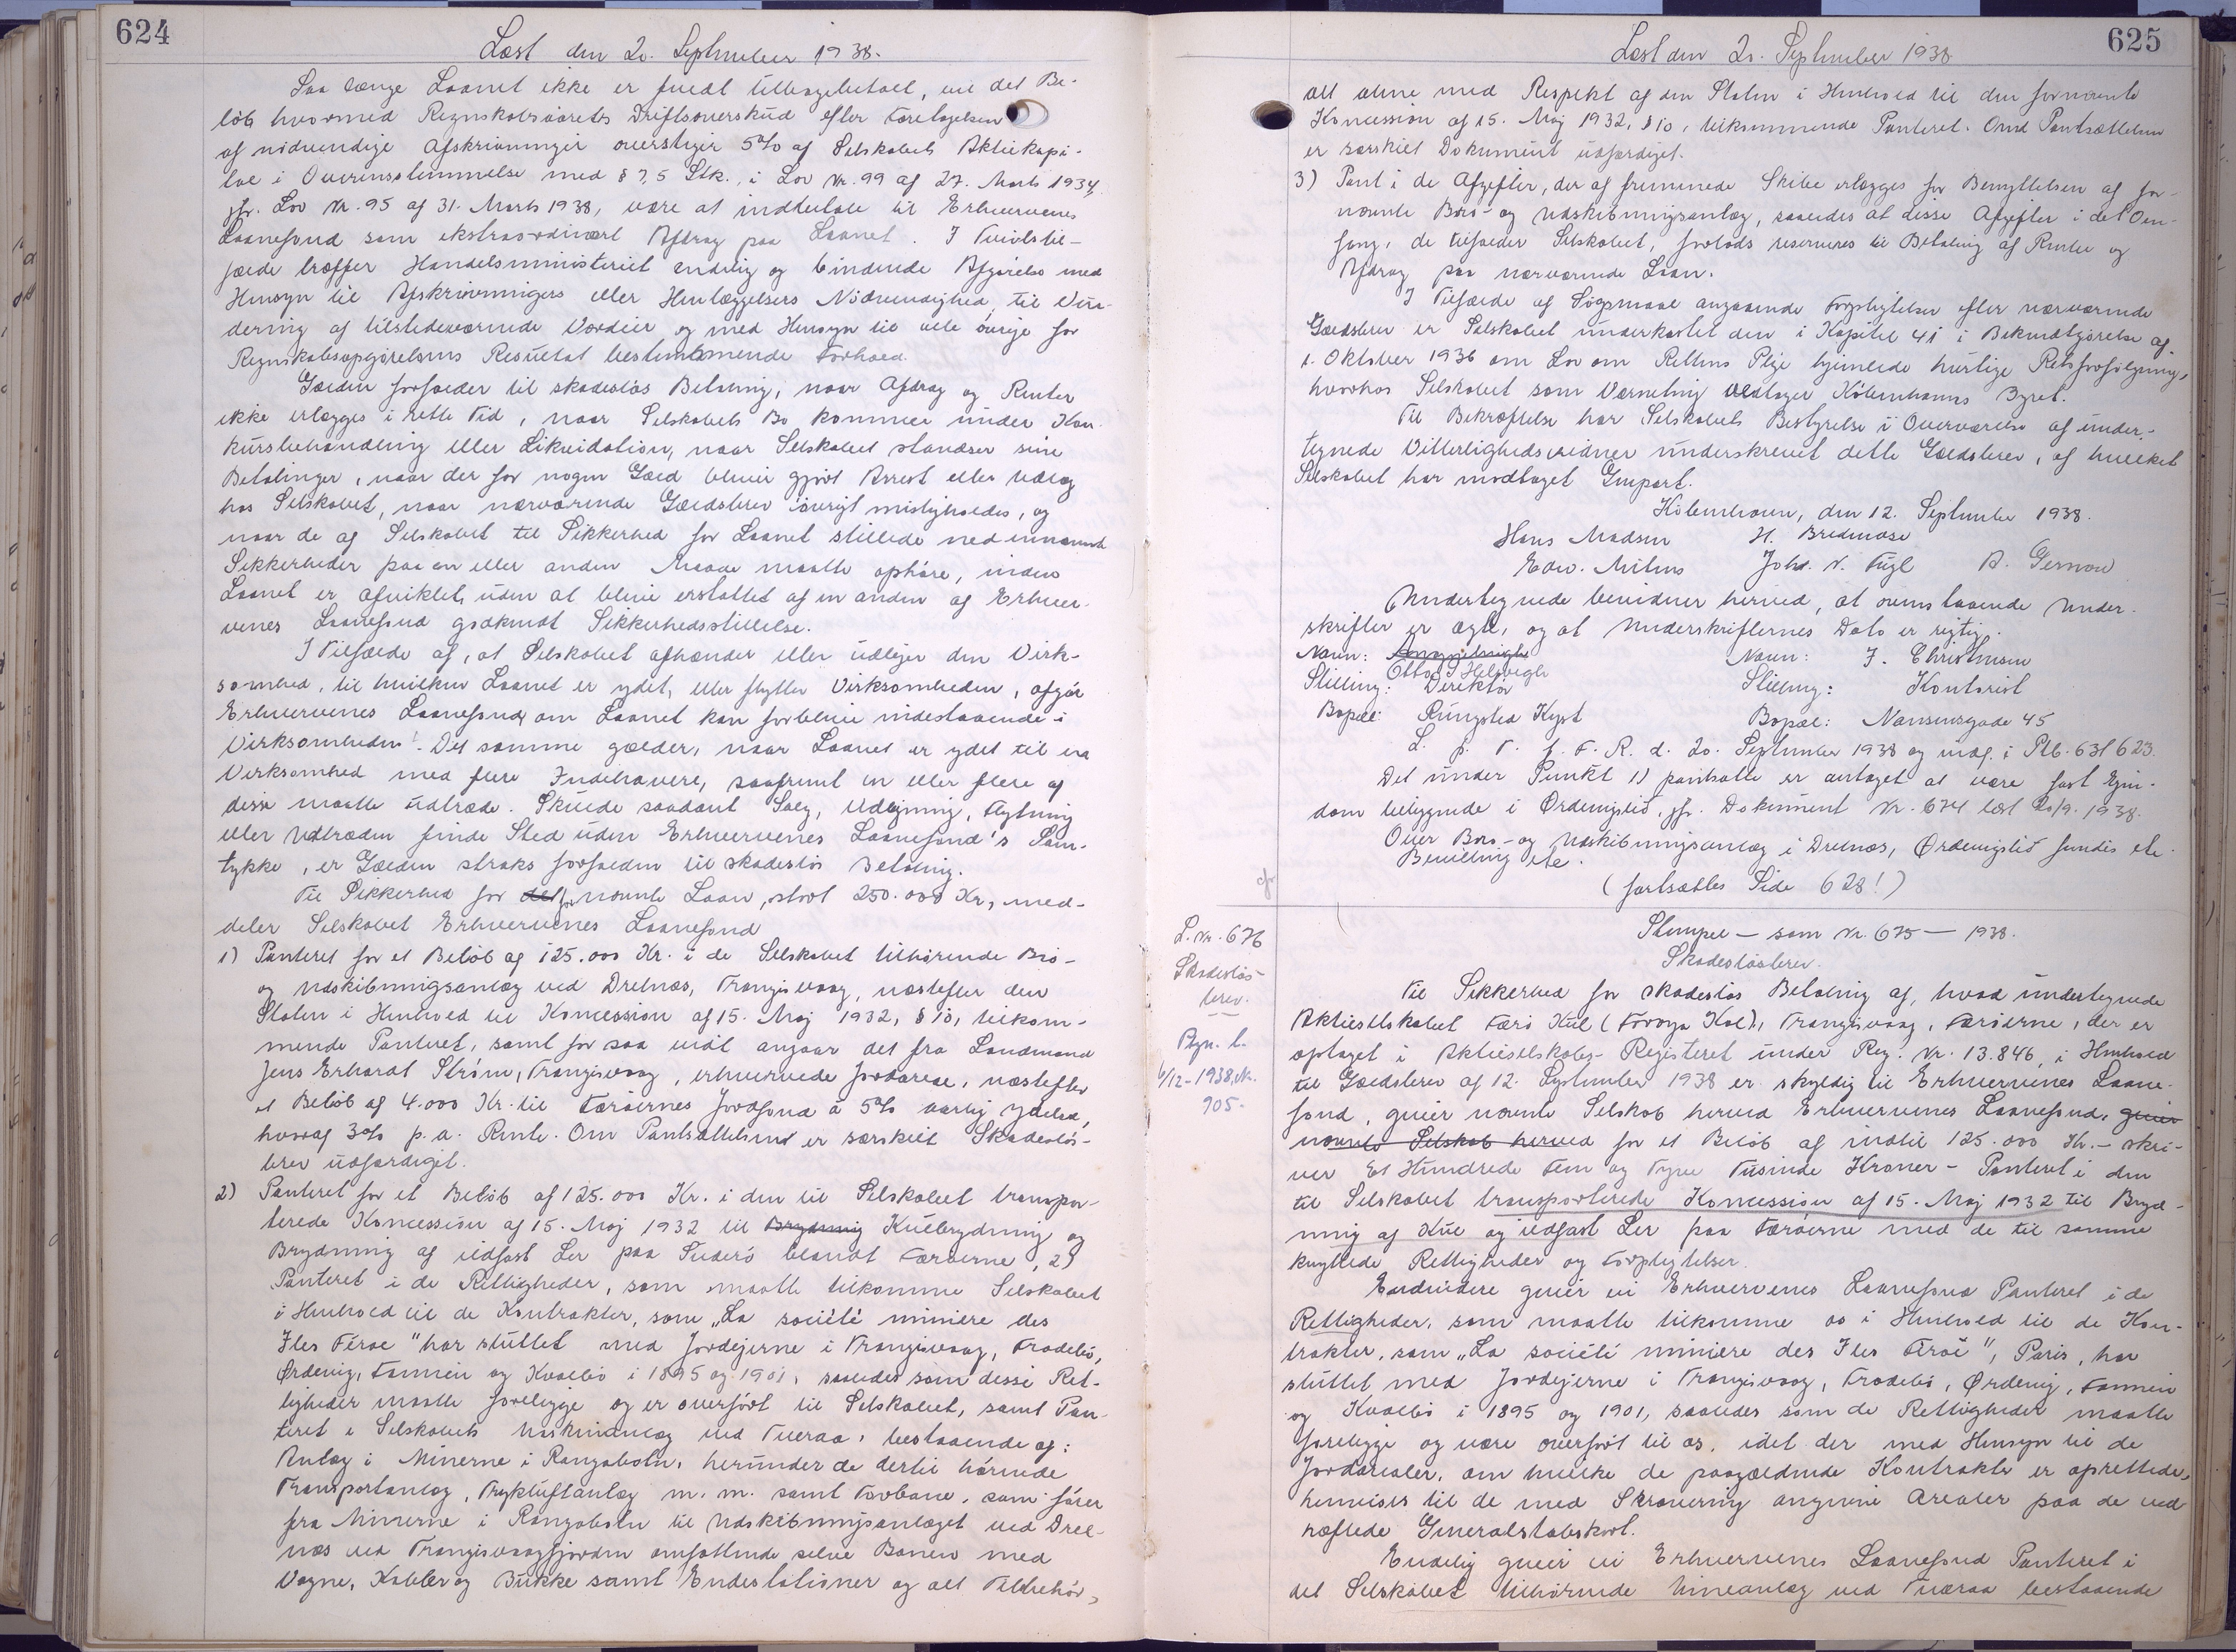 624
Læst den 20. September 1938.
Saa længe Laanet ikke er fuldt tilbagebetalt, vil det Be-
løb hvormed Regnskabsaarets Driftsoverskud efter Foretagelsen
af nødvendige Afskrivninger overstiger 5% af Selskabets Aktiekapi-
tal i Overensstemmelse med § 7, 5 Stk., i Lov Nr. 99 af 27. Marts 1934,
jfr. Lov Nr. 95 af 31. Marts 1938, være at indbetale til Erhvervenes
Laanefond som ekstraordinært Afdrag paa Laanet. I Tvivlstil-
fælde træffer Handelsministeriet endelig og bindende Afgørelse med
Hensyn til Afskrivningers eller Henlæggelsers Nødvendighed, til Vur-
dering af tilstedeværende Værdier og med Hensyn til alle øvrige for
Regnskabsopgørelsens Resultat bestemmende Forhold.
Gælden forfalder til skadesløs Betaling, naar Afdrag og Renter
ikke erlægges i rette Tid, naar Selskabets Bo kommer under Kon-
kursbehandling eller Likvidation, naar Selskabet standser sine
Betalinger, naar der for nogen Gæld bliver gjort Arrest eller Udlæg
hos Selskabet, naar nærværende Gældsbrev iøvrigt misligholdes, og
naar de af Selskabet til Sikkerhed for Laanet stillede nedennævnte
Sikkerheder paa en eller anden Maade maatte ophøre, inden
Laanet er afviklet, uden at blive erstattet af en anden af Erhver-
venes Laanefond godkendt Sikkerhedsstillelse.
I Tilfælde af, at Selskabet afhænder eller udlejer den Virk-
somhed, til hvilken Laanet er ydet, eller flytter Virksomheden, afgør
Erhvervenes Laanefond, om Laanet kan forblive indestaaende i
Virksomheden. Det samme gælder, naar Laanet er ydet til en
Virksomhed med flere Indehavere, saafremt en eller flere af
disse maatte udtræde. Skulde saadant Salg, Udlejning, Flytning
eller Udtræden finde Sted uden Erhvervenes Laanefond's Sam-
tykke, er Gælden straks forfalden til skadesløs Betaling.
Til Sikkerhed for det fornævnte Laan, stort 250.000 Kr., med-
deler Selskabet Erhvervenes Laanefond
1) Panteret for et Beløb af 125.000 Kr. i de Selskabet tilhørende Bro-
og Udskibningsanlæg ved Drelnæs, Trangisvaag, næstefter den
Staten i Henhold til Koncession af 15. Maj 1932, § 10, tilkom-
mende Panteret, samt for saa vidt angaar det fra Landmand
Jens Erhardt Strøm, Trangisvaag, erhvervede Jordareal, næstefter
et Beløb af 4.000 Kr. til Færøernes Jordfond à 5% aarlig Ydelse,
hvoraf 3% p.a. Rente. Om Pantsættelsen er særskilt Skadesløs-
brev udfærdiget.
2) Panteret for et Beløb af 125.000 Kr. i den til Selskabet transpor-
terede Koncession af 15. Maj 1932 til Brydning Kulbrydning og
Brydning af ildfast Ler paa Suderø blandt Færøerne, 2)
Panteret i de Rettigheder, som maatte tilkomme Selskabet
i Henhold til de Kontrakter, som „La société miniere des
Iles Féroe" har sluttet med Jordejerne i Trangisvaag, Frodebø,
Ørdevig, Famein og Kvalbø i 1895 og 1901, saaledes som disse Ret-
tigheder maatte foreligge og er overført til Selskabet, samt Pan-
teret i Selskabets Maskinanlæg ved Tveraa, bestaaende af:
Anlæg i Minerne i Rangabotn, herunder de dertil hørende
Transportanlæg, Trykluftanlæg m.m. samt Tovbane, som fører
fra Minerne i Rangabotn til Udskibningsanlæget ved Drel-
næs ved Trangisvaagfjorden omfattende selve Banen med
Vogne, Kabler og Bukke samt Endestationer og alt Tilbehør,
625
Læst den 20. September 1938
alt alene med Respekt af den Staten i Henhold til den fornævnte
Koncession af 15. Maj 1932, § 10, tilkommende Panteret. Om Pantsættelsen
er særskilt Dokument udfærdiget.
3) Pant i de Afgifter, der af fremmede Skibe erlægges for Benyttelsen af for-
nævnte Bro- og Udskibningsanlæg, saaledes at disse Afgifter i det Om-
fang, de tilfalder Selskabet, forlods reserveres til Betaling af Renter og
Afdrag paa nærværende Laan.
I Tilfælde af Søgsmaal angaaende Forpligtelsen efter nærværende
Gældsbrev er Selskabet underkastet den i Kapitel 41 i Bekendtgørelse af
1. Oktober 1936 om Lov om Rettens Pleje hjemlede hurtige Retsforfølgning,
hvorhos Selskabet som Værneting vedtager Københavns Byret.
Til Bekræftelse har Selskabets Bestyrelse i Overværelse af under-
tegnede Vitterlighedsvidner underskrevet dette Gældsbrev, af hvilket
Selskabet har modtaget Genpart.
København, den 12. September 1938.
Hans Madsen H. Bredmose
Edw. Mitens Johs. V. Fugl A. Gernow
Undertegnede bevidner herved, at ovenstaaende Under-
skrifter er ægte, og at Underskrifternes Dato er rigtig.
Navn: Otto J Helsvigh Navn: J. Christensen
Stilling: Direktør Stilling: Kontorist
Bopæl: Rungsted Kyst Bopæl: Nansensgade 45
L. p. T. f. F. R. d. 20. September 1938 og indf. i Ptb. 631 623
Det under Punkt 1) pantsatte er antaget at være fast Ejen-
dom beliggende i Ørdevigslid, jfr. Dokument Nr. 674 læst 20/9. 1938.
Over Bro- og Udskibningsanlæg i Drelnæs, Ørdevigslid fandis ete
Bevilling ete.
(fortsættes Side 628!)
L. Nr. 676
Skadesløs-
brev.
Stempel — som Nr. 675 — 1938.
Skadesløsbrev.
Til Sikkerhed for skadesløs Betaling af, hvad undertegnede
Aktieselskabet Færø Kul (Føroya Kol), Trangisvaag, Færøerne, der er
optaget i Aktieselskabs-Registeret under Reg. Nr. 13.846, i Henhold
til Gældsbrev af 12. September 1938 er skyldig til Erhvervenes Laane-
fond, giver nævnte Selskab herved Erhvervenes Laanefond, giver
nævnte Selskab herved for et Beløb af indtil 125.000 Kr. - skri-
ver Et Hundrede Fem og Tyve Tusinde Kroner - Panteret i den
til Selskabet transporterede Koncession af 15. Maj 1932 til Bryd-
ning af Kul og ildfast Ler paa Færøerne med de til samme
knyttede Rettigheder og Forpligtelser.
Endvidere giver vi Erhvervenes Laanefond Panteret i de
Rettigheder, som maatte tilkomme os i Henhold til de Kon-
trakter, som „La société miniere des Iles Féroé", Paris, har
sluttet med Jordejerne i Trangisvaag, Frodebø, Ørdevig, Famein
og Kvalbø i 1895 og 1901, saaledes som de Rettigheder maatte
foreligge og være overført til os, idet der med Hensyn til de
Jordarealer, om hvilke de paagældende Kontrakter er oprettede,
henvises til de med Skravering angivne Arealer paa de ved
hæftede Generalstabskort.
Endelig giver vi Erhvervenes Laanefond Panteret i
det Selskabet tilhørende Mineanlæg ved Tveraa bestaaende